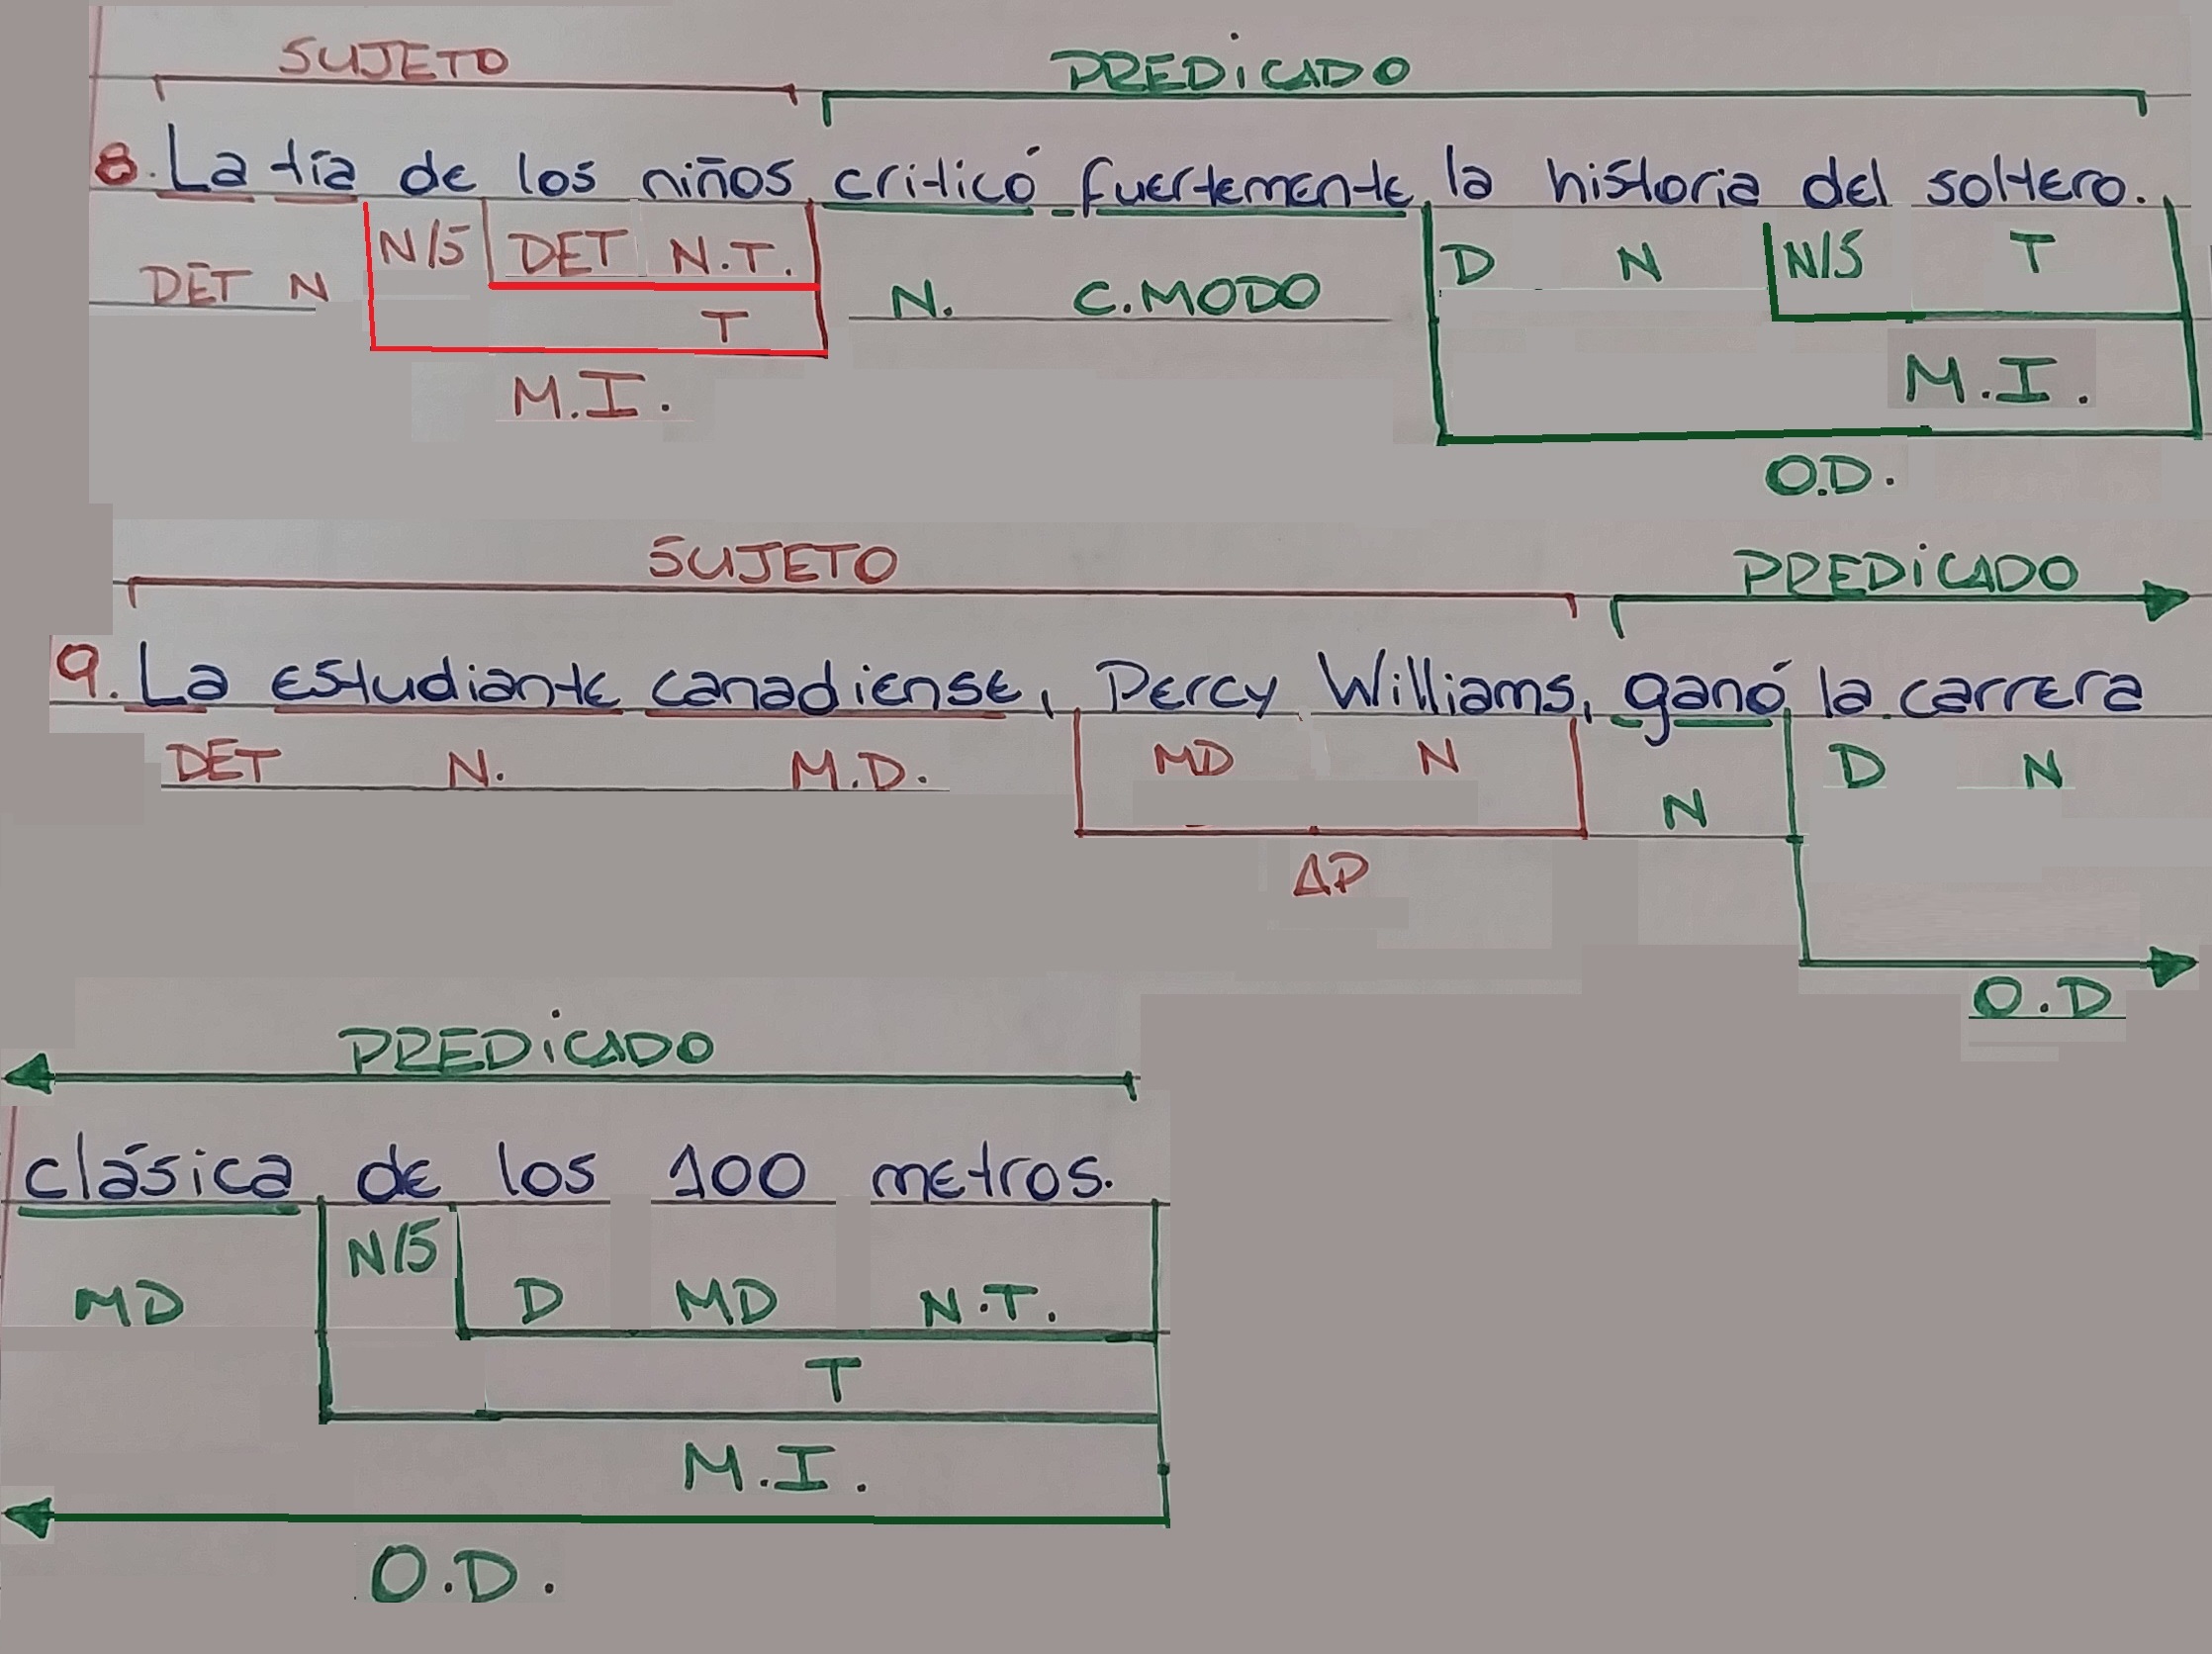 SUJETO PREDICADO
8. La tía de los niños criticó fuertemente la historia del soltero.
DET N N/S DET N.T. N. C.MODO D N N/S T
T
M.I. M.I.
O.D.
SUJETO PREDICADO
9. La estudiante canadiense, Percy Williams, ganó la carrera
DET N. M.D. MD N N D N
AP
O.D
PREDICADO
clásica de los 100 metros.
MD N/S D MD N.T.
T
M.I.
O.D.